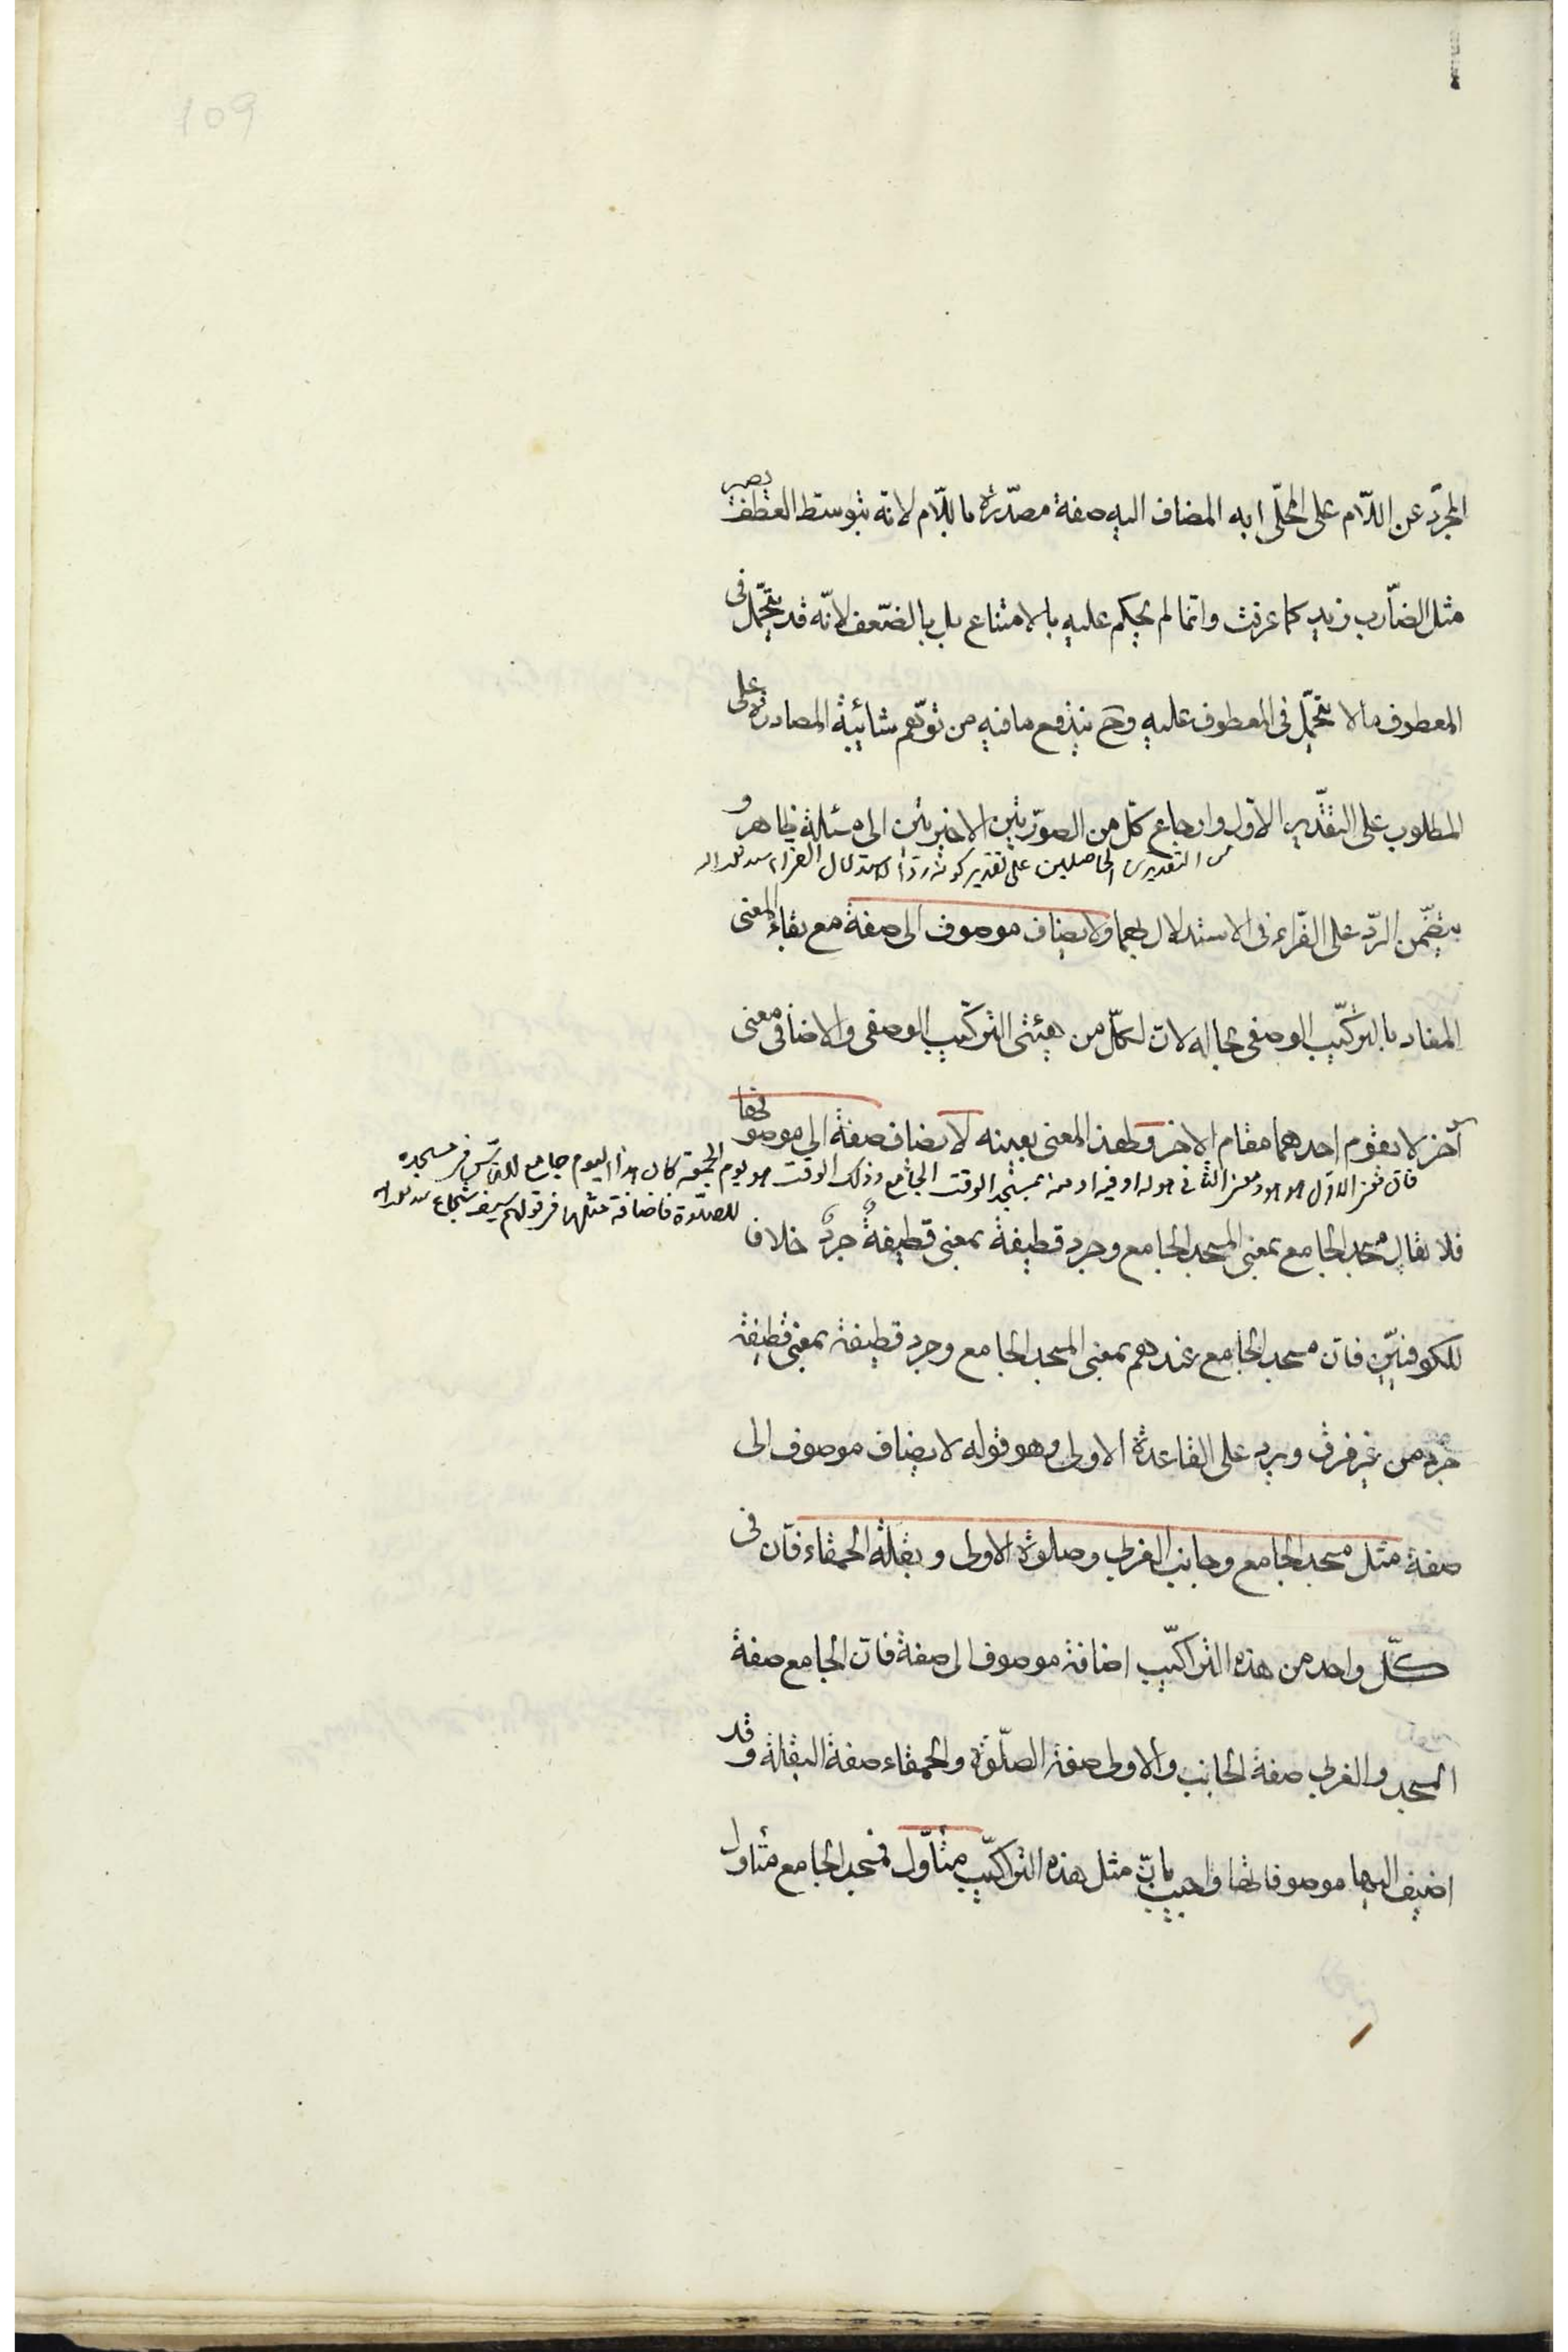 109
المجرّد عن اللّام على المحلّى به المضاف اليه صفة مصدّرة باللّام لانه بتوسّط العطف يصير
مثل الضّارب زيد كما عرفت وانّما لم يحكم عليه بالامتناع بل بالضّعف لانّه قد يتحمّل فى
المعطوف ما لا يتحمّل فى المعطوف عليه وح يندفع ما فيه من توهّم شائبة المصادرة على
المطلوب على التقدير الاوّل وارجاع كلّ من الصورتين الاخيرتين الى مسئلة ظاهر و
من التقديرين الحاصلين على تقدير كونه ردّا لاستدلال الفراء
يتضمّن الردّ على الفرّاء فى الاستدلال بهما ولا يضاف موصوف الى صفة مع بقاء المعنى
المفاد بالتركيب الوصفى بحاله لان لكلّ من هيئتى التركيب الوصفى والاضافى معنى
آخر لا يقوم احدهما مقام الاخر ولهذا المعنى بعينه لا يضاف صفة الى موصوفها
فان معنى الاول هو هو ومعنى الثانى هو له او فيه او منه مسجد الوقت الجامع وذلك الوقت هو يوم الجمعة كان هذا اليوم جامع للناس فى مسجده
للصلوة فاضافة مثلها فى قولهم سيف شجاع
فلا يقال مسجد الجامع بمعنى المسجد الجامع وجرد قطيفة بمعنى قطيفة جردٌ خلافا
للكوفيّين فان مسجد الجامع عندهم بمعنى المسجد الجامع وجرد قطيفة بمعنى قطيفة
جرد من غير فرق ويرد على القاعدة الاولى وهو قوله لا يضاف موصوف الى
صفة مثل مسجد الجامع وجانب الغربى وصلوة الاولى وبقلة الحمقاء فان فى
كلّ واحد من هذه التراكيب اضافة موصوف الى صفة فان الجامع صفة
المسجد والغربى صفة الجانب والاولى صفة الصّلوة والحمقاء صفة البقلة وقد
اضيف اليها موصوفاتها واجيب بانّ مثل هذه التراكيب متاوّل فمسجد الجامع متاول